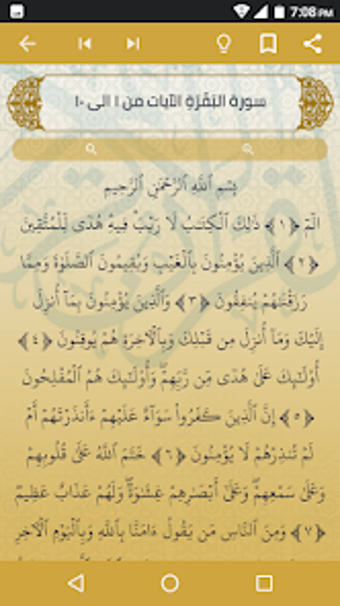 7:08 PM
سورة البَقَرَةِ الآيات من ١ الى ١٠
بِسْمِ ٱللَّهِ ٱلرَّحْمَٰنِ ٱلرَّحِيمِ
الٓمٓ ﴿١﴾ ذَٰلِكَ ٱلْكِتَٰبُ لَا رَيْبَ ۛ فِيهِ هُدًى لِّلْمُتَّقِينَ
﴿٢﴾ ٱلَّذِينَ يُؤْمِنُونَ بِٱلْغَيْبِ وَيُقِيمُونَ ٱلصَّلَوٰةَ وَمِمَّا
رَزَقْنَٰهُمْ يُنفِقُونَ ﴿٣﴾ وَٱلَّذِينَ يُؤْمِنُونَ بِمَآ أُنزِلَ
إِلَيْكَ وَمَآ أُنزِلَ مِن قَبْلِكَ وَبِٱلْءَاخِرَةِ هُمْ يُوقِنُونَ ﴿٤﴾
أُو۟لَٰٓئِكَ عَلَىٰ هُدًى مِّن رَّبِّهِمْ ۖ وَأُو۟لَٰٓئِكَ هُمُ ٱلْمُفْلِحُونَ
﴿٥﴾ إِنَّ ٱلَّذِينَ كَفَرُوا۟ سَوَآءٌ عَلَيْهِمْ ءَأَنذَرْتَهُمْ أَمْ
لَمْ تُنذِرْهُمْ لَا يُؤْمِنُونَ ﴿٦﴾ خَتَمَ ٱللَّهُ عَلَىٰ قُلُوبِهِمْ
وَعَلَىٰ سَمْعِهِمْ ۖ وَعَلَىٰٓ أَبْصَٰرِهِمْ غِشَٰوَةٌ ۖ وَلَهُمْ عَذَابٌ عَظِيمٌ
﴿٧﴾ وَمِنَ ٱلنَّاسِ مَن يَقُولُ ءَامَنَّا بِٱللَّهِ وَبِٱلْيَوْمِ ٱلْءَاخِرِ